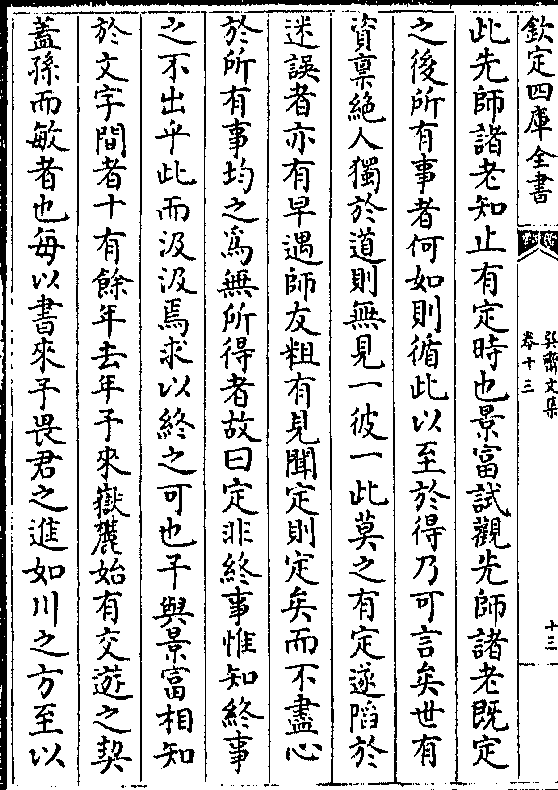 欽定四庫全書
巽齋文集
卷十三
十三
此先師諸老知止有定時也景富試觀先師諸老既定
之後所有事者何如則循此以至於得乃可言矣世有
資稟絕人獨於道則無見一彼一此莫之有定遂陷於
迷誤者亦有早遇師友粗有見聞定則定矣而不盡心
於所有事均之為無所得者故曰定非終事惟知終事
之不出乎此而汲汲焉求以終之可也予與景富相知
於文字間者十有餘年去年予來嶽麓始有交遊之契
蓋孫而敏者也每以書來予畏君之進如川之方至以